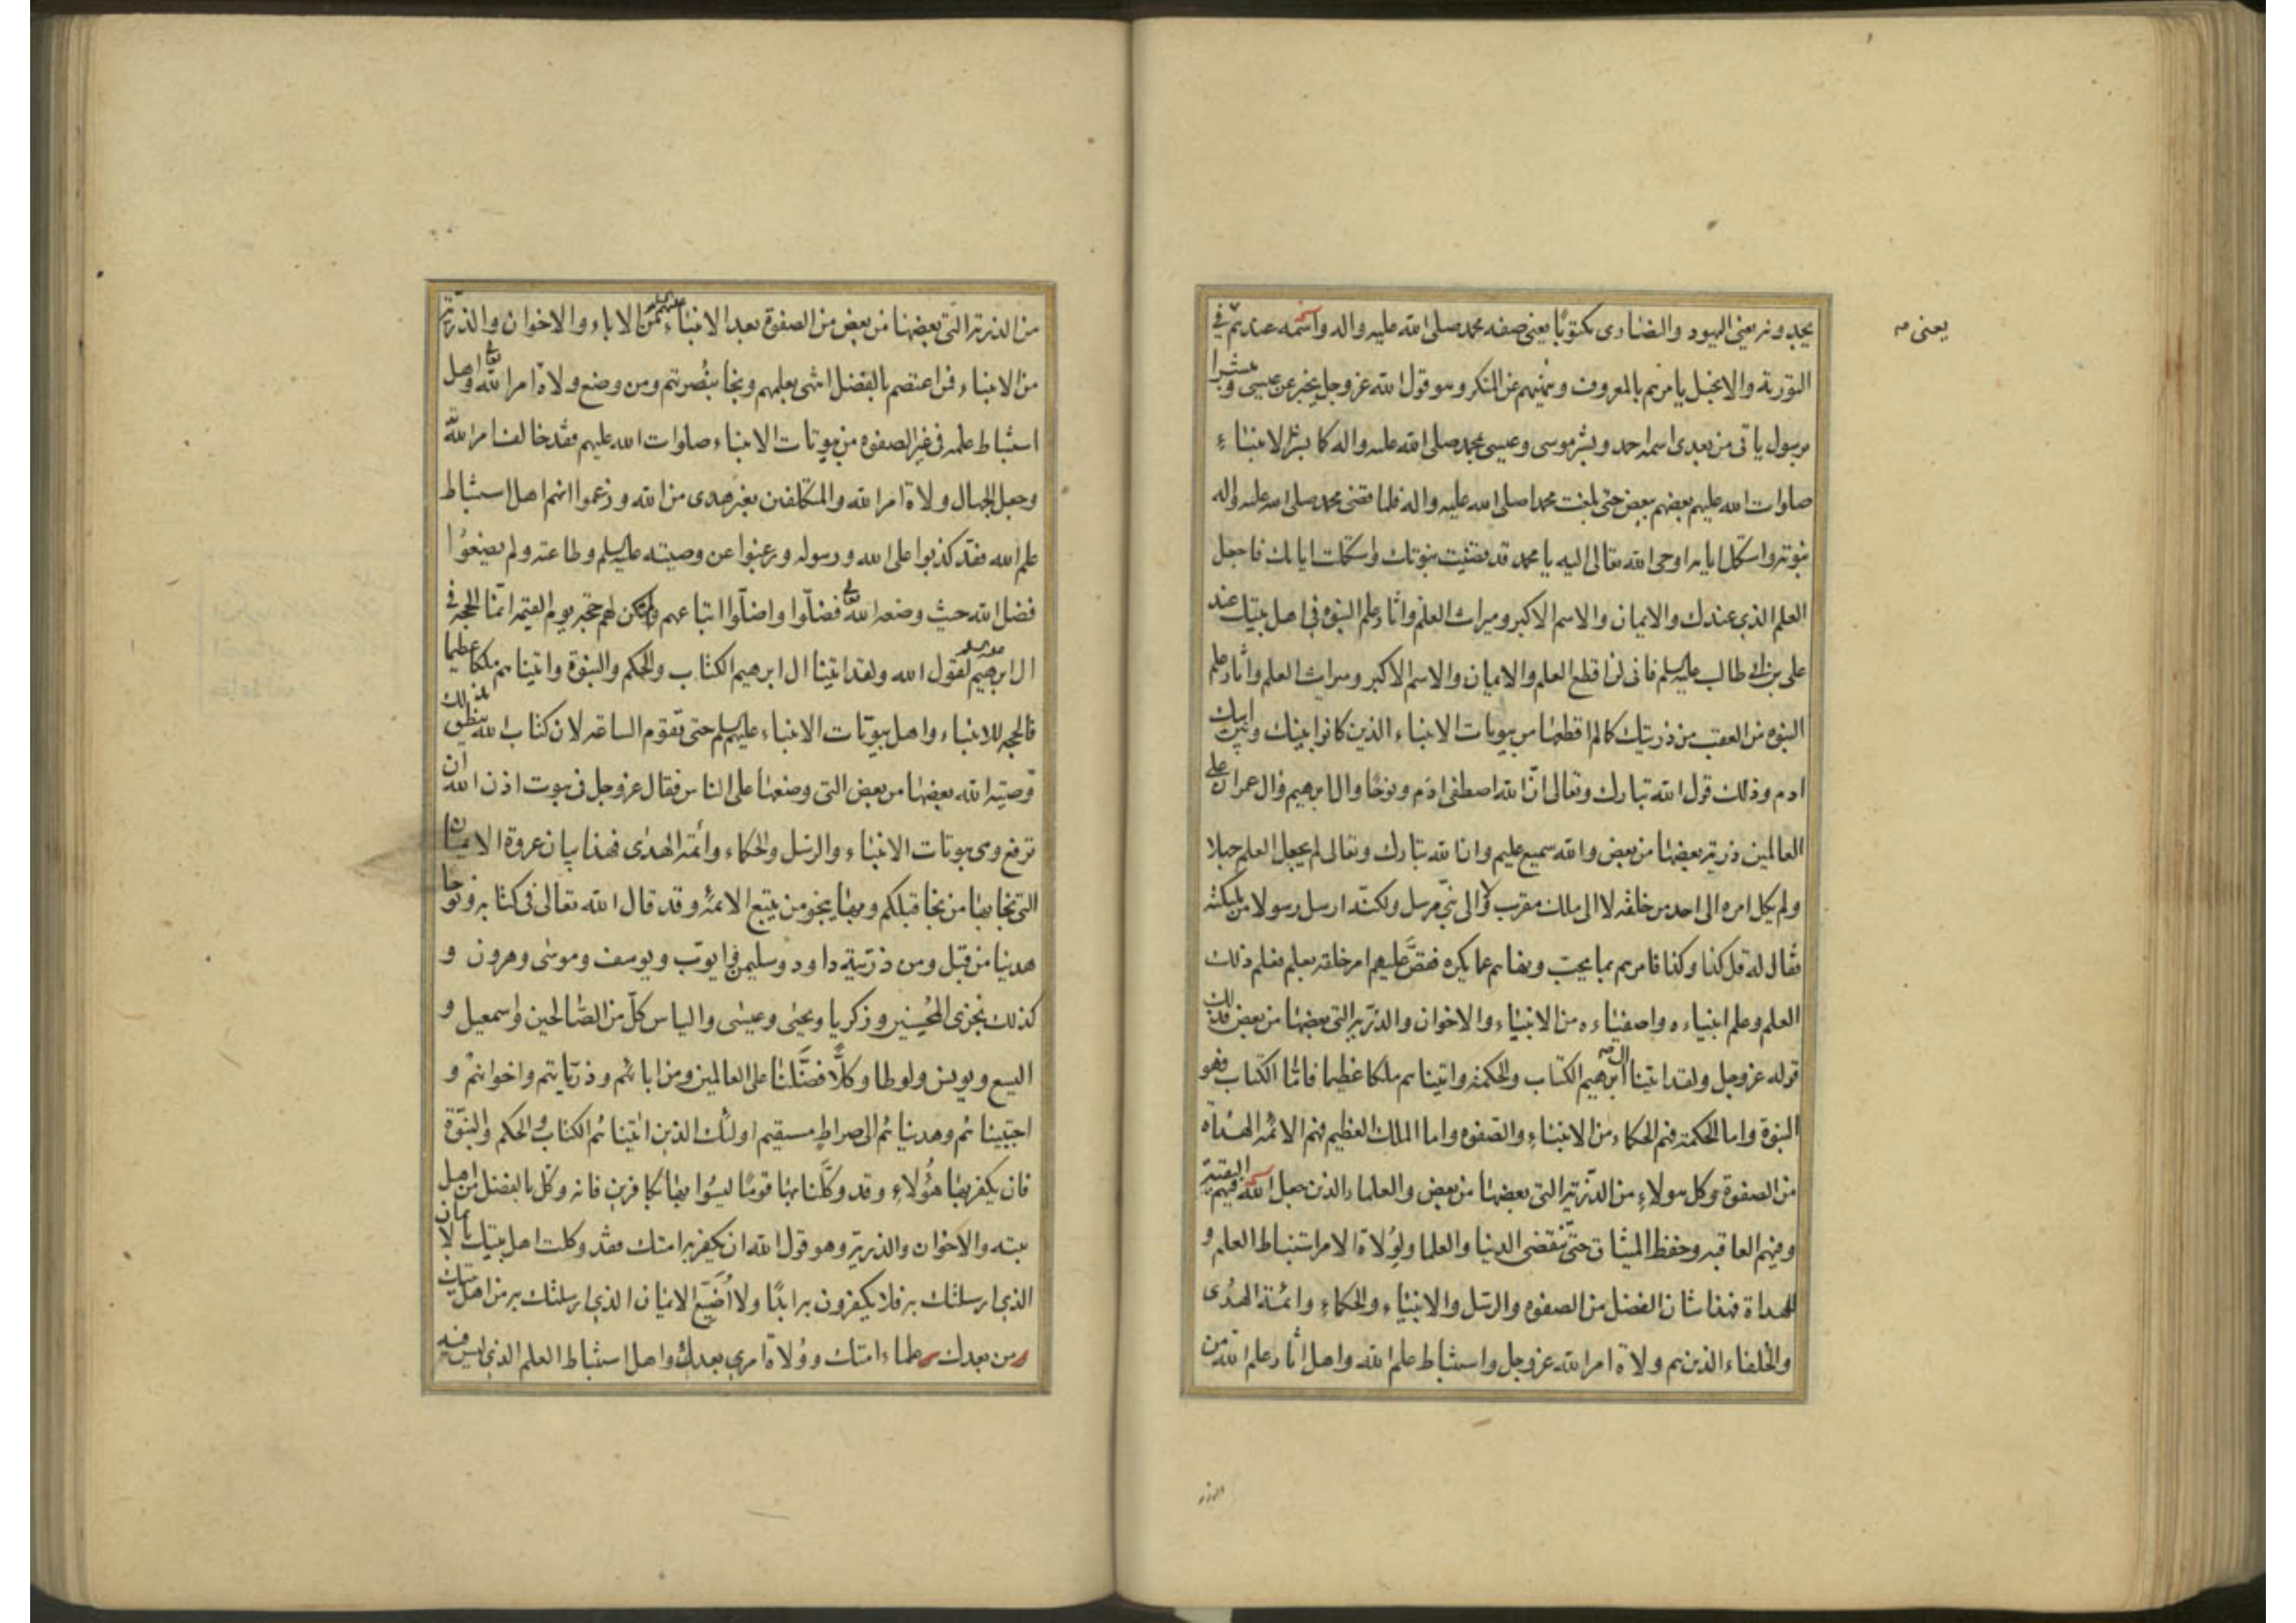 يجدونه يعني اليهود والنصارى مكتوبا يعني صفه محمد صلى الله عليه واله واسمه عندهم في
يعنى صح
التورية والانجيل يامرهم بالمعروف وينهيهم عن المنكر وهو قول الله عز وجل يخبر عن عيسى ومبشرا
برسول ياتى من بعدى اسمه احمد وبشر موسى وعيسى بمحمد صلى الله عليه واله كما بشر الانبياء
صلوات الله عليهم بعضهم ببعض حتى بلغت محمدا صلى الله عليه واله فلما قضى محمد صلى الله عليه واله
نبوته واستكمل ايامه اوحى الله تعالى اليه يا محمد قد قضيت نبوتك واستكملت ايامك فاجعل
العلم الذي عندك والايمان والاسم الاكبر وميراث العلم واثار علم النبوه في اهل بيتك عند
على بن ابى طالب عليه السلم فانى لن اقطع العلم والايمان والاسم الاكبر وميراث العلم واثار علم
النبوه من العقب من ذريتك كما لم اقطعها من بيوتات الانبياء الذين كانوا بينك وبين ابيك
ادم وذلك قول الله تبارك وتعالى ان الله اصطفى ادم ونوحا وال ابرهيم وال عمران على
العالمين ذرية بعضها من بعض والله سميع عليم وان الله تبارك وتعالى لم يجعل العلم جهلا
ولم يكل امره الى احد من خلقه لا الى ملك مقرب ولا الى نبي مرسل ولكنه ارسل رسولا من ملئكته
فقال له قل كذا وكذا فامرهم بما يحب ونهاهم عما يكره فقص عليهم امر خلقه بعلم فعلم ذلك
العلم وعلم انبياءه واصفياءه من الانبياء والاخوان والذرية التي بعضها من بعض فذلك
قوله عز وجل ولقد اتينا ال ابرهيم الكتاب والحكمة واتيناهم ملكا عظيما فاما الكتاب فهو
النبوة واما الحكمة فهم الحكماء من الانبياء والصفوه واما الملك العظيم فهم الائمة الهداة
من الصفوة وكل هولاء من الذرية التي بعضها من بعض والعلماء الذين جعل الله فيهم البقية
وفيهم العاقبه وحفظ الميثاق حتى تنقضى الدنيا والعلما ولولاة الامر استنباط العلم و
للهداة فهذا شان الفضل من الصفوه والرسل والانبياء والحكماء وائمة الهدى
والخلفاء الذين هم ولاة امر الله عز وجل واستنباط علم الله واهل اثار علم الله من
من الذرية التي بعضها من بعض من الصفوة بعد الانبياء عليهم السلم من الاباء والاخوان والذرية
من الانبياء فمن اعتصم بالفضل انتهى بعلمهم ونجا بنصرتهم ومن وضع ولاة امر الله تعالى واهل
استنباط علمه في غير الصفوه من بيوتات الانبياء صلوات الله عليهم فقد خالف امر الله
وجعل الجهال ولاة امر الله والمتكلفين بغير هدى من الله وزعموا انهم اهل استنباط
علم الله فقد كذبوا على الله ورسوله ورغبوا عن وصيته عليه السلم وطاعته ولم يضعوا
فضل الله حيث وضعه الله تعالى فضلوا واضلوا اتباعهم ولم يكن لهم حجة يوم القيمه انما الحجة في
ال ابرهيم لقول الله ولقد اتينا ال ابرهيم الكتاب والحكم والنبوة واتيناهم ملكا عظيما
فالحجه للانبياء واهل بيوتات الانبياء عليهم السلم حتى تقوم الساعة لان كتاب الله ينطق بذلك
وصية الله بعضها من بعض التى وضعها على الناس فقال عز وجل في بيوت اذن الله ان
ترفع وهى بيوتات الانبياء والرسل والحكماء وائمة الهدى فهذا بيان عروة الايمان
التى نجا بها من نجا قبلكم وبها ينجو من يتبع الائمة وقد قال الله تعالى في كتابه ونوحا
هدينا من قبل ومن ذريته داود وسليمن وايوب ويوسف وموسى وهرون و
كذلك نجزى المحسنين وزكريا ويحيى وعيسى والياس كل من الصالحين واسمعيل و
اليسع ويونس ولوطا وكلا فضلنا على العالمين ومن ابائهم وذرياتهم واخوانهم و
اجتبيناهم وهديناهم الى صراط مستقيم اولئك الذين اتيناهم الكتاب والحكم والنبوة
فان يكفر بها هؤلاء وقد وكلنا بها قوما ليسوا بها بكافرين فانه وكل بالفضل من اهل
بيته والاخوان والذرية وهو قول الله ان يكفر به امتك فقد وكلت اهل بيتك بالايمان
الذي ارسلتك به فلا يكفرون به ابدا ولا اضيع الايمان الذي ارسلتك به من اهل بيتك
من بعدك علماء امتك وولاة امري بعدك واهل استنباط العلم الذي ليس فيه